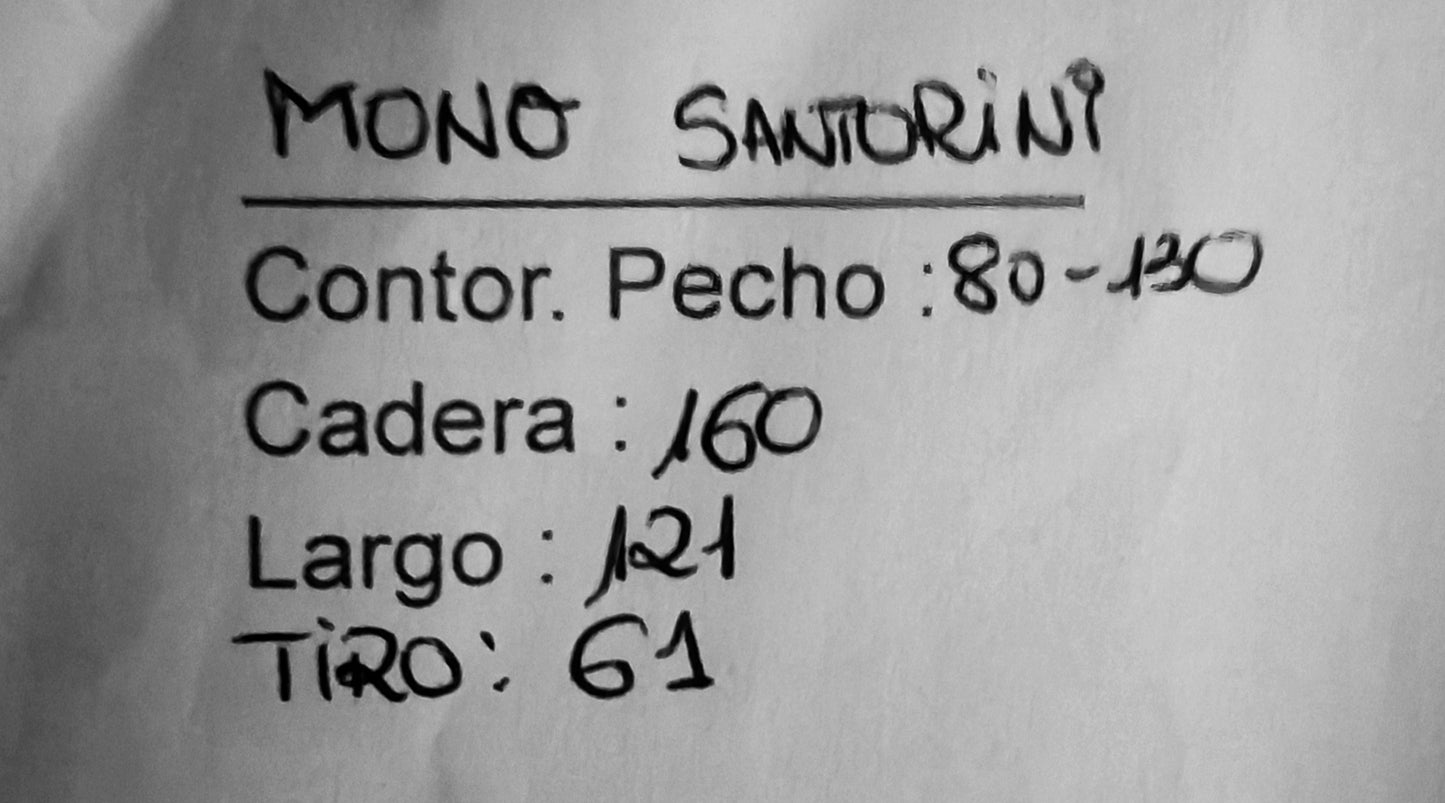 MONO SANTORINI
Contor. Pecho : 80-130
Cadera : 160
Largo : 121
TIRO: 61